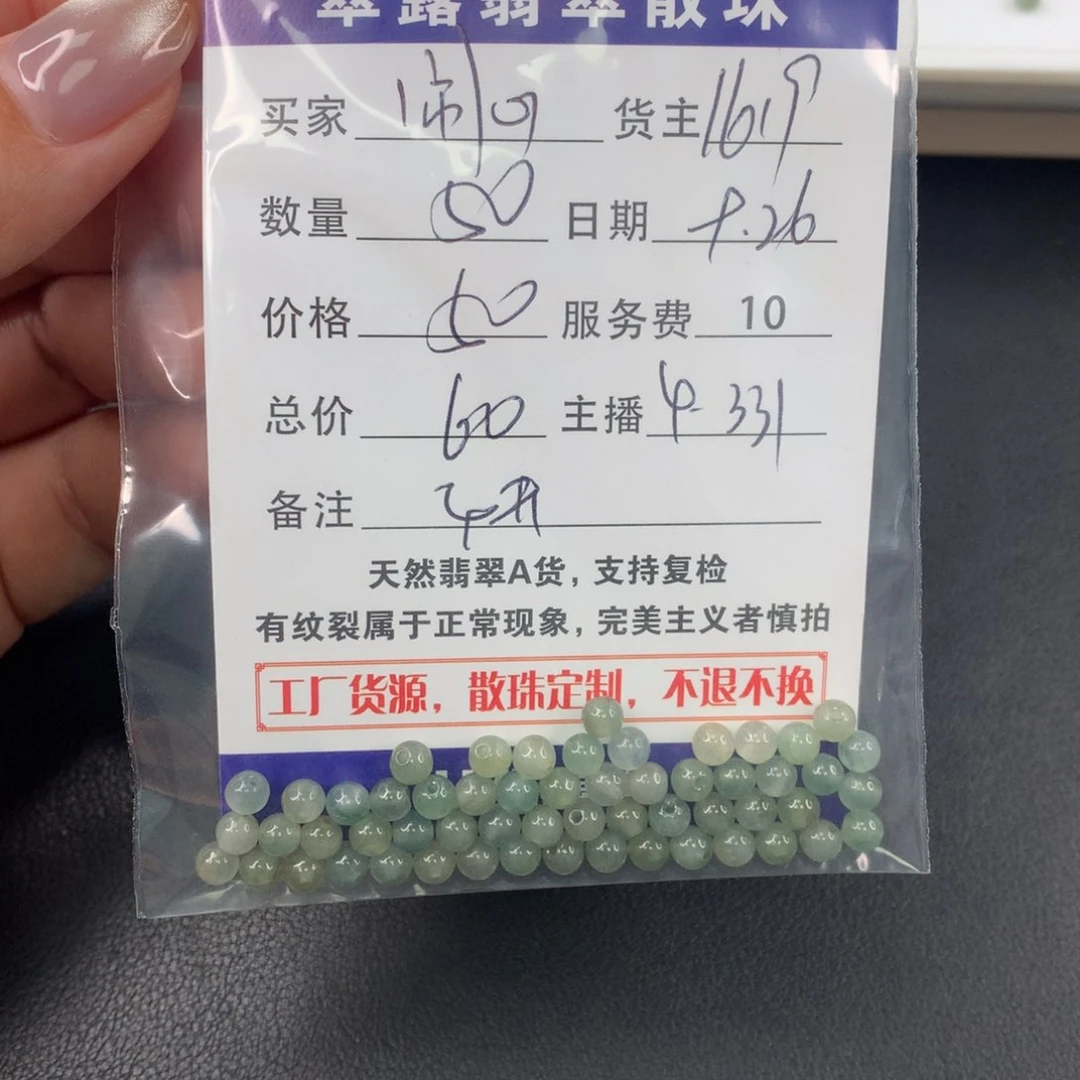 翠露翡翠散珠
买家 货主 1619
数量 50 日期 9.26
价格 50 服务费 10
总价 60 主播 331
备注
天然翡翠A货，支持复检
有纹裂属于正常现象，完美主义者慎拍
工厂货源，散珠定制，不退不换